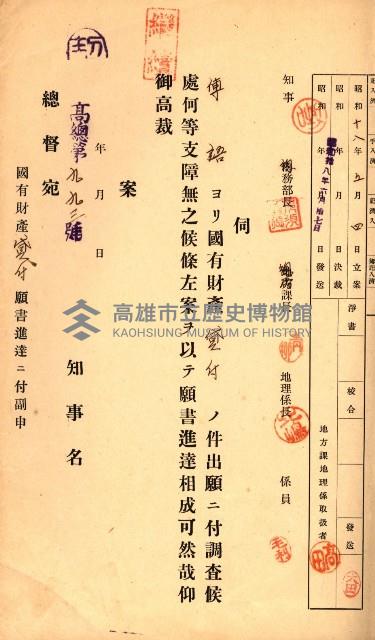 昭和十八年五月四日立案
昭和 年 月 日決裁
昭和拾八年六月拾七日發送
淨書
校合
發送
地方課地理係取扱者
知事
總務部長
地方課長
地理係長
係員
伺
傅 ヨリ國有財產貸付ノ件出願ニ付調查候
處何等支障無之候條左案ヲ以テ願書進達相成可然哉仰
御高裁
案
年 月 日
高總第九九三號
知事名
總督宛
國有財產貸付願書進達ニ付副申
高雄市立歷史博物館
KAOHSIUNG MUSEUM OF HISTORY